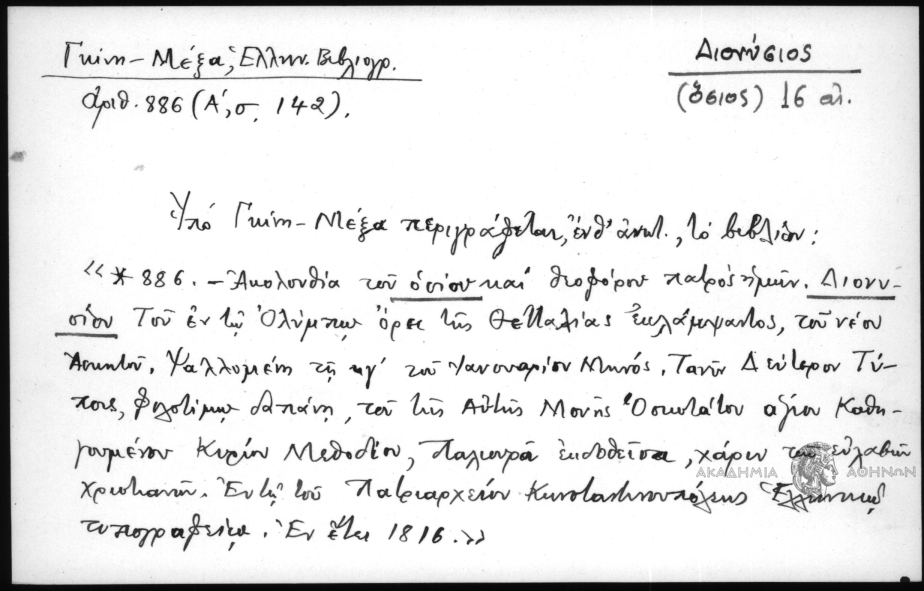 Γκίνη – Μέξα, Ἑλλην. Βιβλιογρ.
ἀριθ. 886 (Α', σ. 142).
Διονύσιος
(ὅσιος) 16 αἰ.
Ὑπό Γκίνη – Μέξα περιγράφεται, ἔνθ' ἀνωτ., τό βιβλίον:
“ * 886. – Ἀκολουθία τοῦ ὁσίου καί θεοφόρου πατρός ἡμῶν. Διονυ-
σίου Τοῦ ἐν τῷ Ὀλύμπῳ ὄρει τῆς Θετταλίας ἐκλάμψαντος, τοῦ νέου
Ἀσκητοῦ. Ψαλλομένη τῇ κγ' τοῦ Ἰανουαρίου Μηνός. Τανῦν Δεύτερον Τύ-
ποις, φιλοτίμῳ δαπάνῃ, τοῦ τῆς Αὐτῆς Μονῆς Ὁσιωτάτου ἀξίου Καθη-
γουμένου Κυρίου Μεθοδίου, ἐκδοθεῖσα, χάριν τῶν εὐλαβῶν
χριστιανῶν. Ἐν τῷ τοῦ Πατριαρχείου Κωνσταντινουπόλεως Ἑλληνικῷ
τυπογραφείῳ. Ἐν ἔτει 1816.”
ΑΚΑΔΗΜΙΑ ΑΘΗΝΩΝ